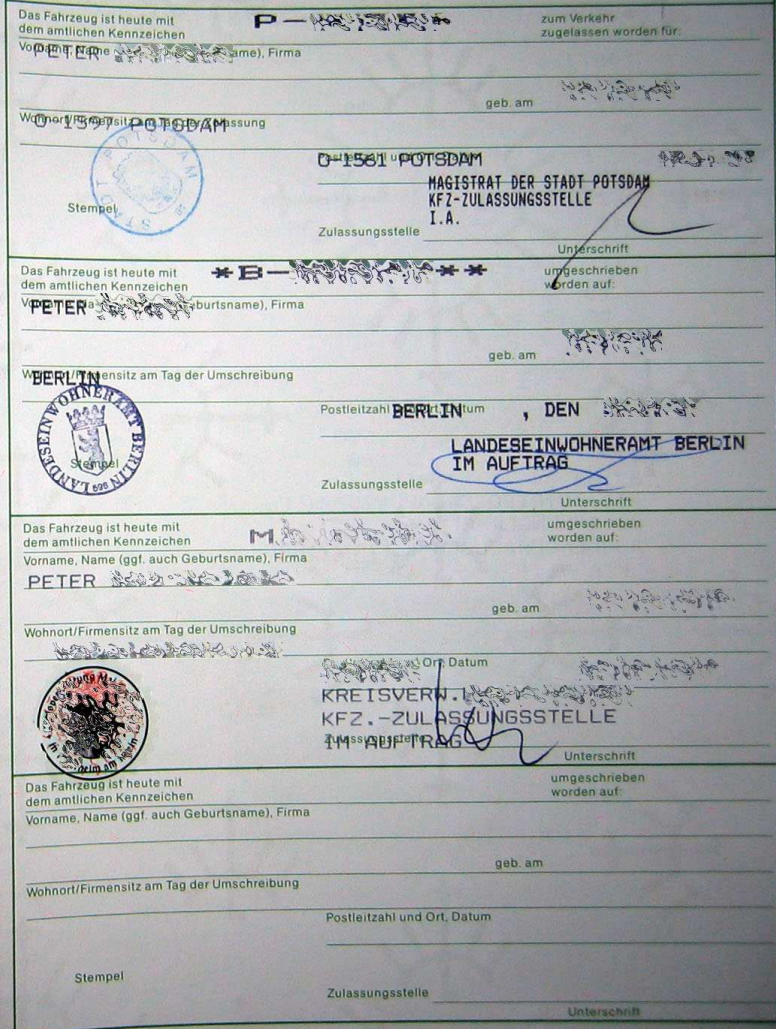 Das Fahrzeug ist heute mit
dem amtlichen Kennzeichen
P-
zum Verkehr
zugelassen worden für:
Vorname, Name ame), Firma
PETER
geb. am
Wohnort/Firmensitz am Tag der Zulassung
O-1597 POTSDAM
Postleitzahl und Ort, Datum
O-1561 POTSDAM
MAGISTRAT DER STADT POTSDAM
KFZ-ZULASSUNGSSTELLE
I.A.
STADT POTSDAM
Stempel
Zulassungsstelle
Unterschrift
Das Fahrzeug ist heute mit
dem amtlichen Kennzeichen
*B- **
umgeschrieben
worden auf:
burtsname), Firma
PETER
geb. am
Wohnort/Firmensitz am Tag der Umschreibung
BERLIN
Postleitzahl Ort, Datum
BERLIN , DEN
LANDESEINWOHNERAMT BERLIN
IM AUFTRAG
LANDESEINWOHNERAMT BERLIN
Stempel
Zulassungsstelle
Unterschrift
Das Fahrzeug ist heute mit
dem amtlichen Kennzeichen
M
umgeschrieben
worden auf:
Vorname, Name (ggf. auch Geburtsname), Firma
PETER
geb. am
Wohnort/Firmensitz am Tag der Umschreibung
Ort, Datum
KREISVERW.
KFZ.-ZULASSUNGSSTELLE
Zulassungsstelle
IM AUFTRAG
Unterschrift
Das Fahrzeug ist heute mit
dem amtlichen Kennzeichen
umgeschrieben
worden auf:
Vorname, Name (ggf. auch Geburtsname), Firma
geb. am
Wohnort/Firmensitz am Tag der Umschreibung
Postleitzahl und Ort, Datum
Stempel
Zulassungsstelle
Unterschrift